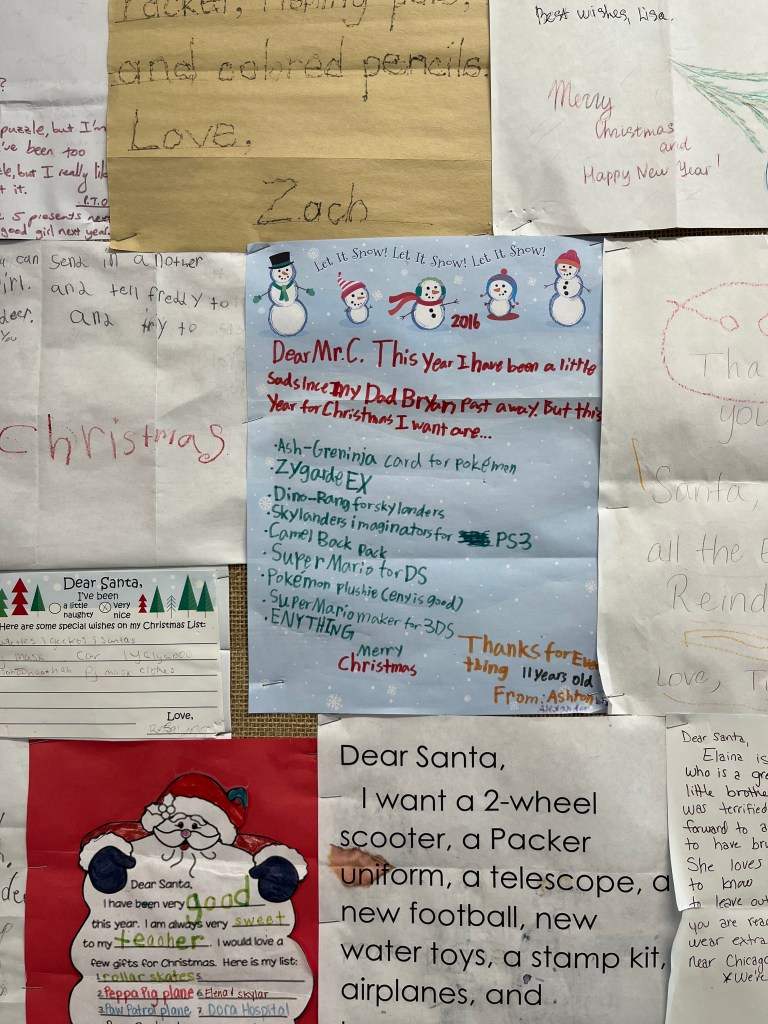 and colored pencils.
Love,
Zach
Best wishes, Lisa.
Merry
Christmas
and
Happy New Year!
puzzle, but I'm
've been too
but I really
it.
P.T.O
5 presents next
good girl next year.
can send in another
and tell freddy to
and try to
Christmas
Let It Snow! Let It Snow! Let It Snow!
2016
Dear Mr. C. This Year I have been a little
sad since my Dad Bryan Past away. But this
Year for Christmas I want are...
•Ash-Greninja card for pokémon
•Zygarde EX
•Dino-Rang for skylanders
•Skylanders imaginators for PS3
•Camel Back Pack
•Super Mario for DS
•Pokémon plushie (eny is good)
•Super Mario maker for 3DS
•ENYTHING
Merry
Christmas
Thanks for Eve
thing 11 years old
From: Ashton
Tha
you
Santa,
all the
Reind
Love,
Dear Santa,
I've been
a little naughty
very nice
Here are some special wishes on my Christmas List:
mask car
Pj mask clothes
Love,
Dear Santa,
I have been very good
this year. I am always very sweet
to my teacher. I would love a
few gifts for Christmas. Here is my list:
1. rollar skates 5.
2. Peppa Pig plane 6. Elena & skylar
3. Paw Patrol plane 7. Dora Hospital
Dear Santa,
I want a 2-wheel
scooter, a Packer
uniform, a telescope, a
new football, new
water toys, a stamp kit,
airplanes, and
Dear Santa,
Elaina is
who is a gre
little brothe
was terrified
forward to a
to have bru
She loves
to know
to leave out
you are rea
wear extra
near Chicago
*We're